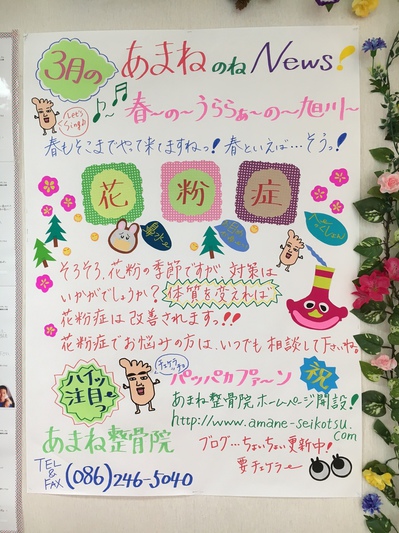 3月の あまねのね News!
Let's Sing♪
春〜の〜うららぁ〜の〜旭川〜
春もそこまでやって来てますねっ! 春といえば…そうっ!
花粉症
鼻水〜
へっくしょん
そろそろ、花粉の季節ですが、対策は
いかがでしょうか? 体質を変えれば
花粉症は改善されますっ!!
花粉症でお悩みの方は、いつでも相談して下さいね。
ハイッ注目〜っ
チェケラッチョ
パッパカプァ〜ン 祝
あまね整骨院ホームページ開設!
http://www.amane-seikotsu.com
あまね整骨院
ブログ…ちょいちょい更新中!
TEL & FAX (086)246-5040
要チェケラ〜